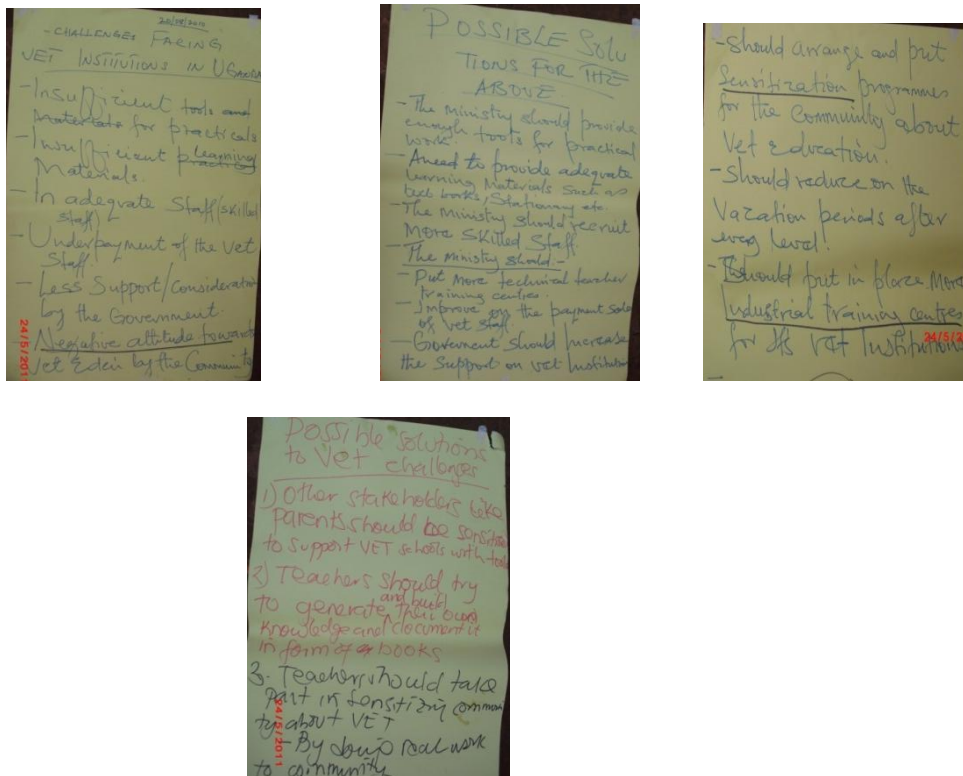 20/05/2011
- CHALLENGES FACING
VET INSTITUTIONS IN UGANDA
- Insufficient tools and
Materials for practicals
- Insufficient learning
Materials.
- In adequate Staff (skilled
staff)
- Underpayment of the vet
Staff
- Less Support/Consideration
by the Government.
- Negative attitude towards
Vet Educn by the Community
24/5/2011
POSSIBLE SOLU
TIONS FOR THE
ABOVE
- The ministry should provide
enough tools for practical
work.
- A need to provide adequate
learning Materials such as
text books, Stationary etc.
- The ministry should recruit
More skilled Staff.
- The ministry should -
- Put More technical teacher
training centres.
- Improve on the payment
of vet staff.
- Government should Increase
the Support on vet Institution
- Should arrange and put
Sensitization programmes
for the Community about
Vet Education.
- Should reduce on the
Vacation periods after
every level.
- Should put in place More
Industrial training centres
for VET Institutions
24/5/2
Possible solutions
to Vet challenges
1) Other stakeholders like
parents should be sensitize
to support VET schools with tools
2) Teachers should try
to generate and build their own
knowledge and document it
in form of books
3. Teachers should take
Part in Sensitizing commun
ty about VET
- By doing real work
to community
24/5/2011